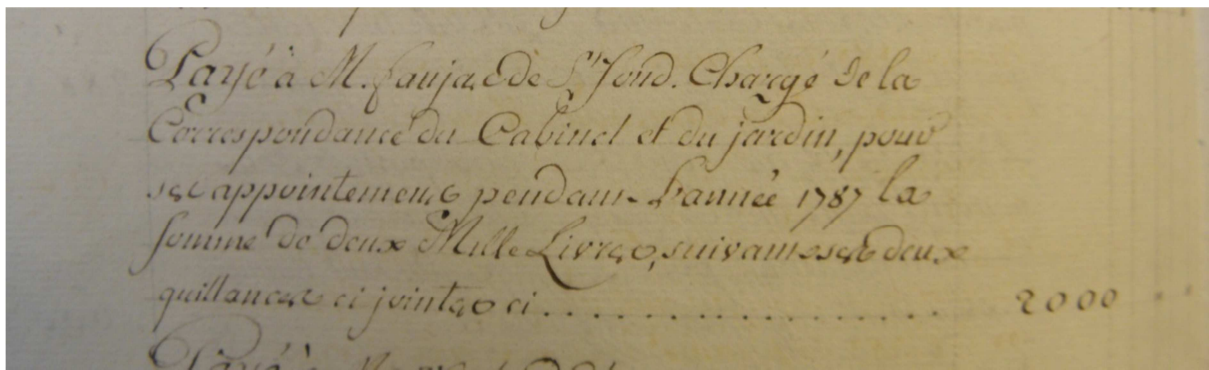 Payé à M. faujas de St fond. Chargé de la
Correspondance du Cabinet et du jardin, pour
ses appointemens pendant L'année 1787 la
somme de deux Mille Livres, suivant ses deux
quittances ci jointes ci . . . . . . . . . . . . . . . . . 2000
Payé à